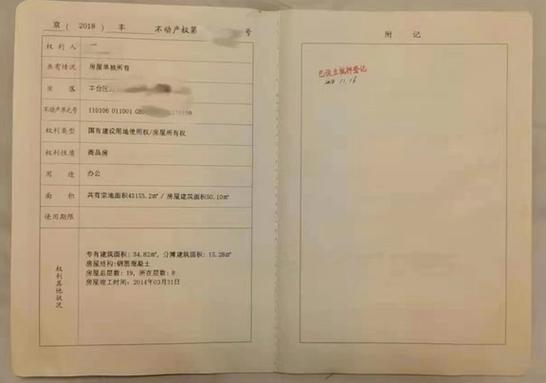 京( 2018 ) 丰 不动产权第 号
权利人
共有情况 房屋单独所有
坐落 丰台区
不动产单元号 110106 011001 GB
权利类型 国有建设用地使用权/房屋所有权
权利性质 商品房
用途 办公
面积 共有宗地面积43155.2㎡ / 房屋建筑面积50.10㎡
使用期限
权利其他状况
专有建筑面积: 34.82㎡, 分摊建筑面积: 15.28㎡
房屋结构:钢筋混凝土
房屋总层数: 19, 所在层数: 8
房屋竣工时间: 2014年03月31日
附记
已设立抵押登记
11.16